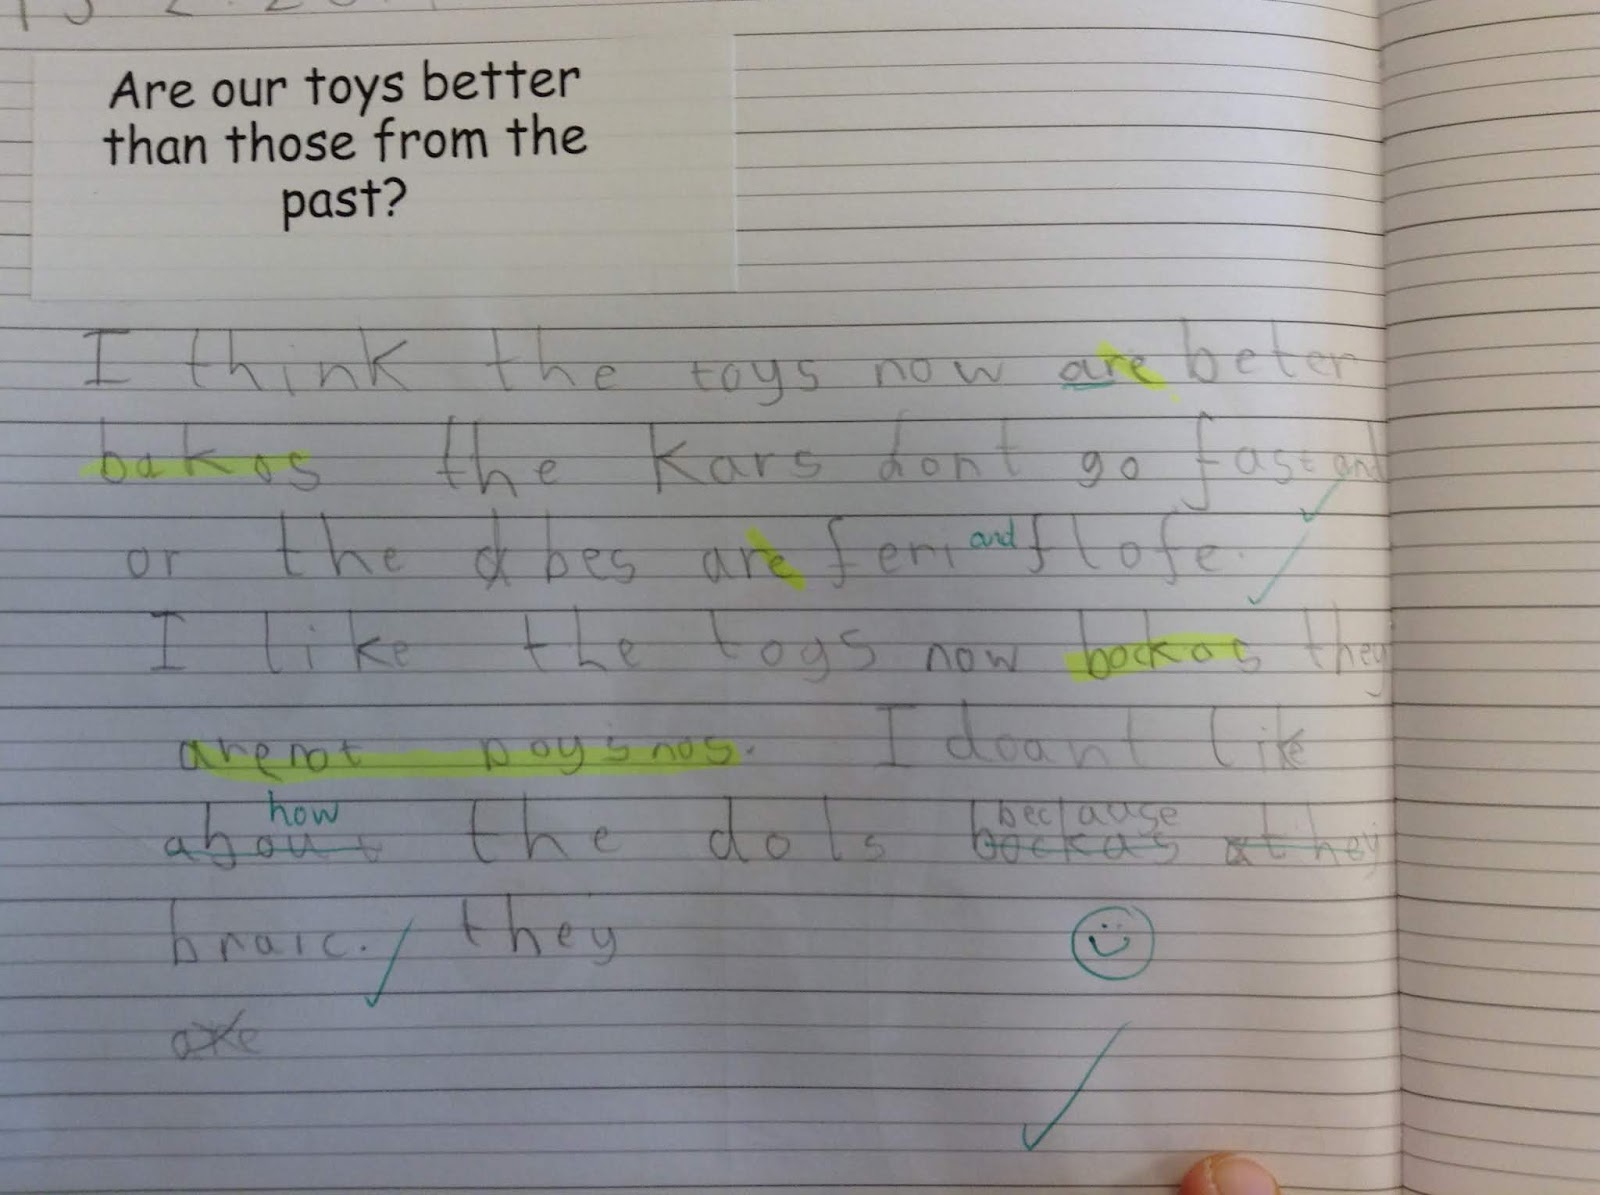 Are our toys better
than those from the
past?
I think the toys now are beter
bakos the kars dont go fast and
or the bes are feri and flofe.
I like the toys now bockos they
arenot poysnos. I doant like
how
about the dols bockas they
beclause
braic. they
are